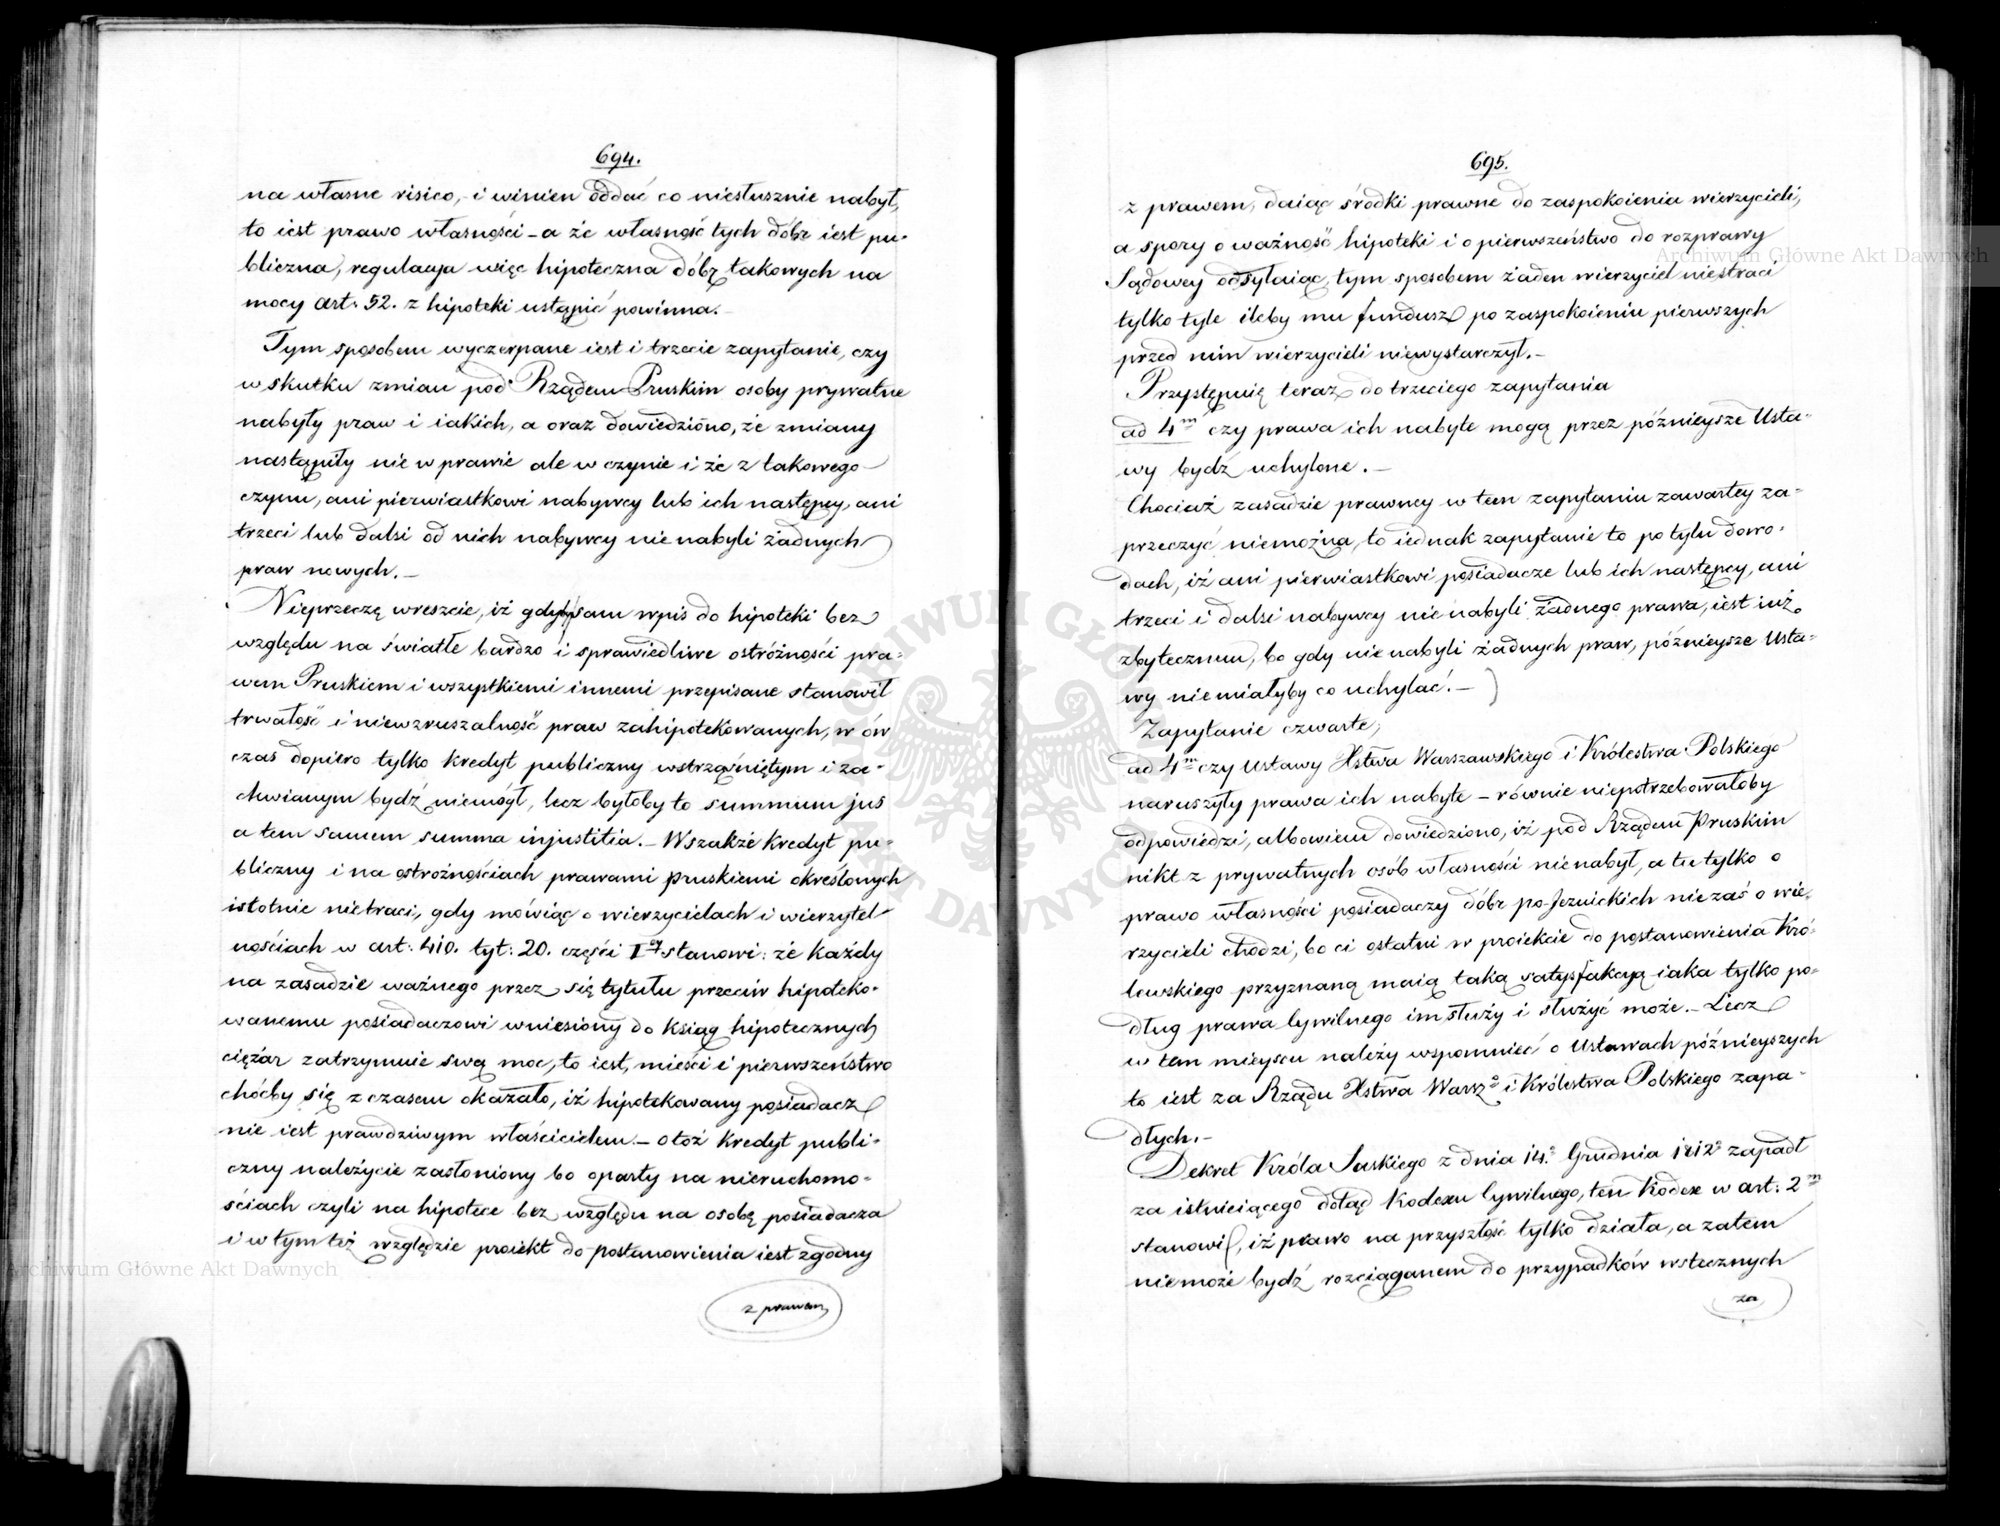 694.
na własne risico, i winien oddać co niesłusznie nabył,
to iest prawo własności - a że własność tych dóbr iest pu-
bliczna, regulacya więc hipoteczna dóbr takowych na
mocy art. 52. z hipoteki ustąpić powinna.
Tym sposobem wyczerpane iest i trzecie zapytanie, czy
w skutku zmian pod Rządem Pruskim osoby prywatne
nabyły praw i iakich, a oraz dowiedziono, że zmiany
nastąpiły nie w prawie ale w czynie i że z takowego
czynu, ani pierwiastkowi nabywcy lub ich następcy, ani
trzeci lub dalsi od nich nabywcy nie nabyli żadnych
praw nowych. -
Nieprzeczę wreszcie, iż gdyby sam wpis do hipoteki bez
względu na światłe bardzo i sprawiedliwe ostróżności pra-
wem Pruskiem i wszystkiemi innemi przepisane stanowił
trwałość i niewzruszalność praw zahipotekowanych, w ów
czas dopiero tylko kredyt publiczny wstrząśniętym i za-
chwianym bydź niemógł, lecz byłoby to summum jus
a tem samem summa injustitia. - Wszakże kredyt pu-
bliczny i na ostrożnościach prawami pruskiemi określonych
istotnie nietraci, gdy mówiąc o wierzycielach i wierzytel-
nościach w art: 410. tyt: 20. części I ey stanowi: że każdy
na zasadzie ważnego przez się tytułu przeciw hipoteko-
wanemu posiadaczowi wniesiony do ksiąg hipotecznych
ciężar zatrzymuie swą moc, to iest, mieści i pierwszeństwo
choćby się z czasem okazało, iż hipotekowany posiadacz
nie iest prawdziwym właścicielem. - otoż kredyt publi-
czny należycie zasłoniony bo oparty na nieruchomo-
ściach czyli na hipotece bez względu na osobę posiadacza
i w tym też względzie proiekt do postanowienia iest zgodny
z prawem,
695.
z prawem, daiąc środki prawne do zaspokoienia wierzycieli,
a spory o ważność hipoteki i o pierwszeństwo do rozprawy
Sądowey odsyłaiąc, tym sposobem żaden wierzyciel niestraci
tylko tyle ileby mu fundusz po zaspokoieniu pierwszych
przed nim wierzycieli niewystarczył. -
Przystępuię teraz do trzeciego zapytania
ad 4m czy prawa ich nabyte mogą przez późnieysze Usta-
wy bydź uchylone. -
Chociaż zasadzie prawney w tem zapytaniu zawartey za-
przeczyć niemożna, to iednak zapytanie to po tylu dowo-
dach, iż ani pierwiastkowi posiadacze lub ich następcy, ani
trzeci i dalsi nabywcy nie nabyli żadnego prawa, iest iuż
zbytecznem, bo gdy nie nabyli żadnych praw, późnieysze Usta-
wy niemiałyby co uchylać. -
Zapytanie czwarte,
ad 4m czy Ustawy Xstwa Warszawskiego i Królestwa Polskiego
naruszyły prawa ich nabyte - równie niepotrzebowałoby
odpowiedzi, albowiem dowiedziono, iż pod Rządem Pruskim
nikt z prywatnych osób własności nie nabył, a tu tylko o
prawo własności posiadaczy dóbr po-Jezuickich nie zaś o wie-
rzycieli chodzi, bo ci ostatni w proiekcie do postanowienia Kró-
lewskiego przyznaną maią taką satysfakcyą iaka tylko po-
dług prawa Cywilnego im służy i służyć może. - Lecz
w tem mieyscu należy wspomnieć o Ustawach późnieyszych
to iest za Rządu Xstwa Warsz° i Królestwa Polskiego zapa-
dłych. -
Dekret Króla Saskiego z dnia 14° Grudnia 1812° zapadł
za istnieiącego dotąd Kodexu Cywilnego, ten Kodex w art: 2m
stanowi, iż prawo na przyszłość tylko działa, a zatem
niemoże bydź rozciąganem do przypadków wstecznych
za
Archiwum Główne Akt Dawnych
Archiwum Główne Akt Dawnych
ARCHIWUM GŁÓWNE
AKT DAWNYCH